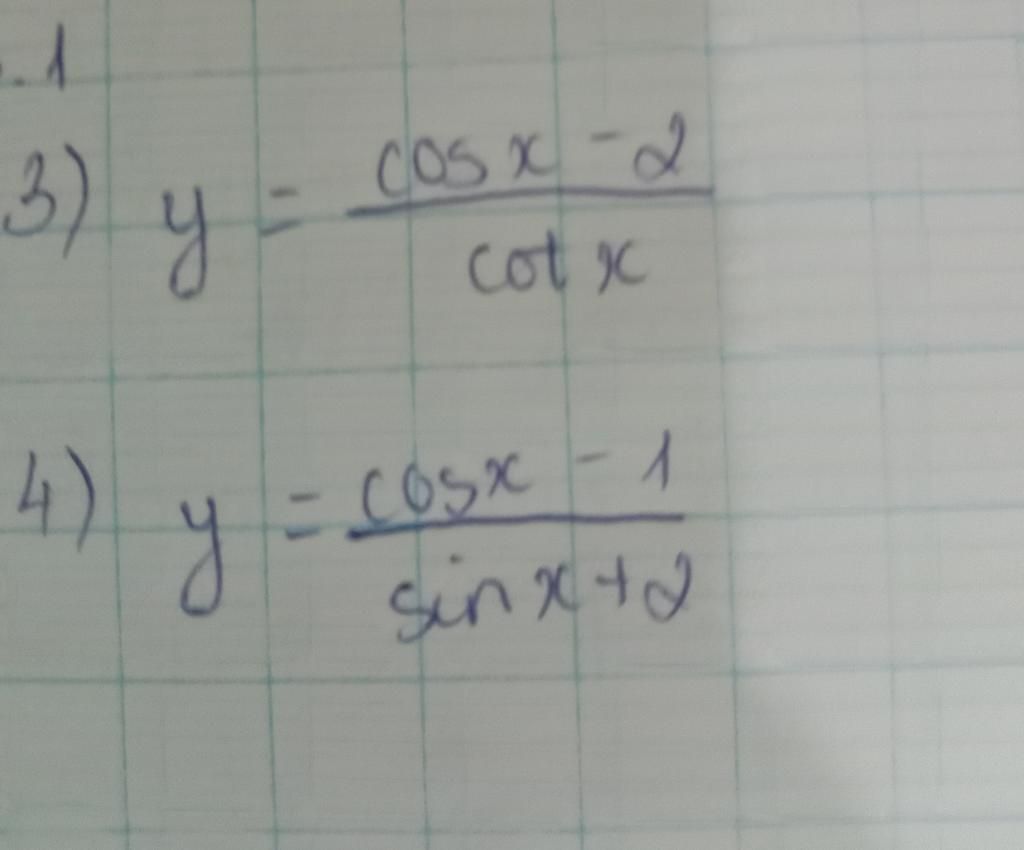 .1
3) y = \frac{cos x - 2}{cot x}
4) y = \frac{cos x - 1}{sin x + 2}